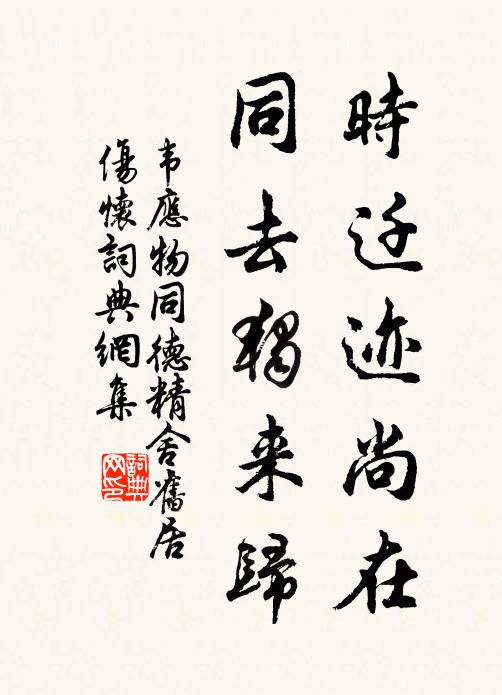 時迁迹尚在
同去獨来歸
韦應物同德精舍舊居
傷懷詞典網集
詞典
网印